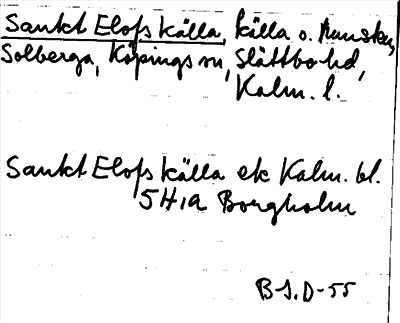 Sankt Elofs källa, källa o. runsten,
Solberga, Köpings sn, Slättbo hd,
Kalm. l.
Sankt Elofs källa ek Kalm. bl.
5H1a Borgholm
B-S.D-55